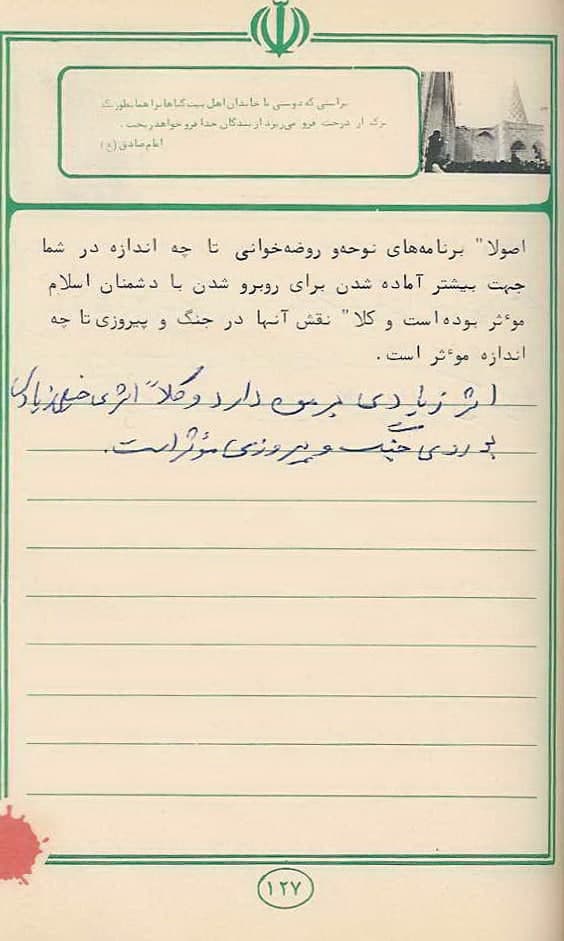 براستی که دوستی با خاندان اهل بیت گناهان را همانطور که
برگ از درخت فرو می‌ریزد از بندگان خدا فرو خواهد ریخت .
امام صادق (ع)
اصولا" برنامه‌های نوحه‌و روضه‌خوانی تا چه اندازه در شما
جهت بیشتر آماده شدن برای روبرو شدن با دشمنان اسلام
موٴثر بوده است و کلا" نقش آنها در جنگ و پیروزی تا چه
اندازه موٴثر است .
اثر زیادی بر من دارد و کلاً اثری خیلی زیادی
بر روی جنگ و پیروزی مؤثر است.
۱۲۷